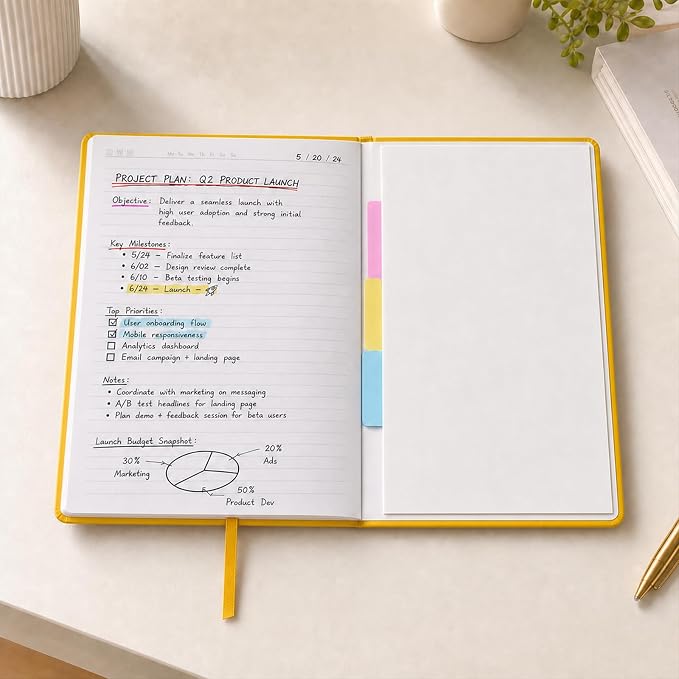 Mo Tu We Th Fr Sa Su
5 / 20 / 24
PROJECT PLAN: Q2 PRODUCT LAUNCH
Objective: Deliver a seamless launch with
high user adoption and strong initial
feedback.
Key Milestones:
• 5/24 – Finalize feature list
• 6/02 – Design review complete
• 6/10 – Beta testing begins
• 6/24 – Launch –
Top Priorities:
☑ User onboarding flow
☑ Mobile responsiveness
☐ Analytics dashboard
☐ Email campaign + landing page
Notes:
• Coordinate with marketing on messaging
• A/B test headlines for landing page
• Plan demo + feedback session for beta users
Launch Budget Snapshot:
30%
Marketing
20%
Ads
50%
Product Dev